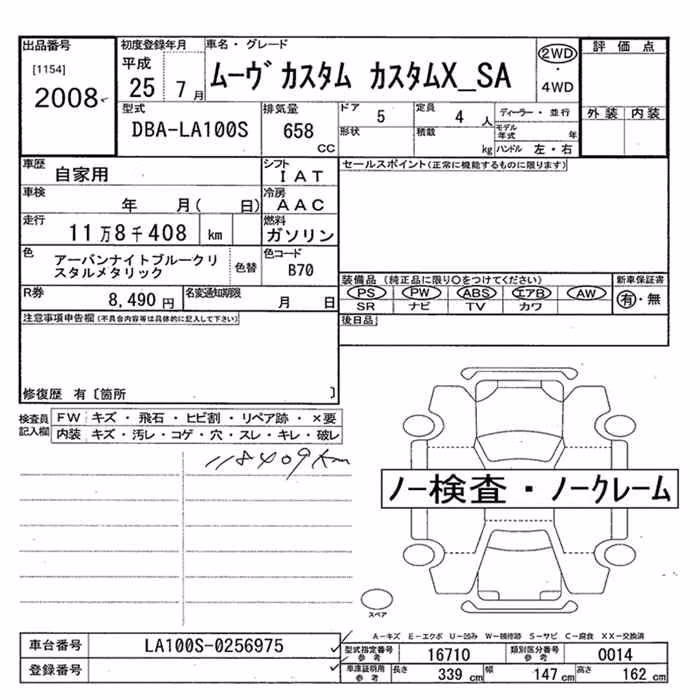 出品番号
[1154]
2008
初度登録年月
平成
25 7月
車名・グレード
ムーヴ カスタム カスタムX_SA
2WD
・
4WD
評価点
外装 内装
型式
DBA-LA100S
排気量
658
CC
ドア 5
定員 4人
形状
積載 kg
ディーラー・並行
モデル年式 年
ハンドル 左・右
車歴
自家用
シフト
IAT
セールスポイント(正常に機能するものに限ります)
車検
年 月( 日)
冷房
AAC
走行
11万8千408 km
燃料
ガソリン
色
アーバンナイトブルークリ
スタルメタリック
色替
色コード
B70
装備品 (純正品に限り○をつけてください)
新車保証書
PS PW ABS エアB AW
有・無
SR ナビ TV カワ
R券
8,490円
名変通知期限
月 日
後日品
注意事項申告欄(不具合内容等は具体的に記入して下さい)
修復歴 有〔箇所 〕
検査員
記入欄
FW キズ・飛石・ヒビ割・リペア跡・×要
内装 キズ・汚レ・コゲ・穴・スレ・キレ・破レ
118409km
ノー検査・ノークレーム
スペア
A-キズ E-エクボ U-凹み W-補修跡 S-サビ C-腐食 XX-交換済
車台番号
LA100S-0256975
型式指定番号
参考
16710
類別区分番号
参考
0014
登録番号
車庫証明用
参考
長さ 339 cm 幅 147 cm 高さ 162 cm